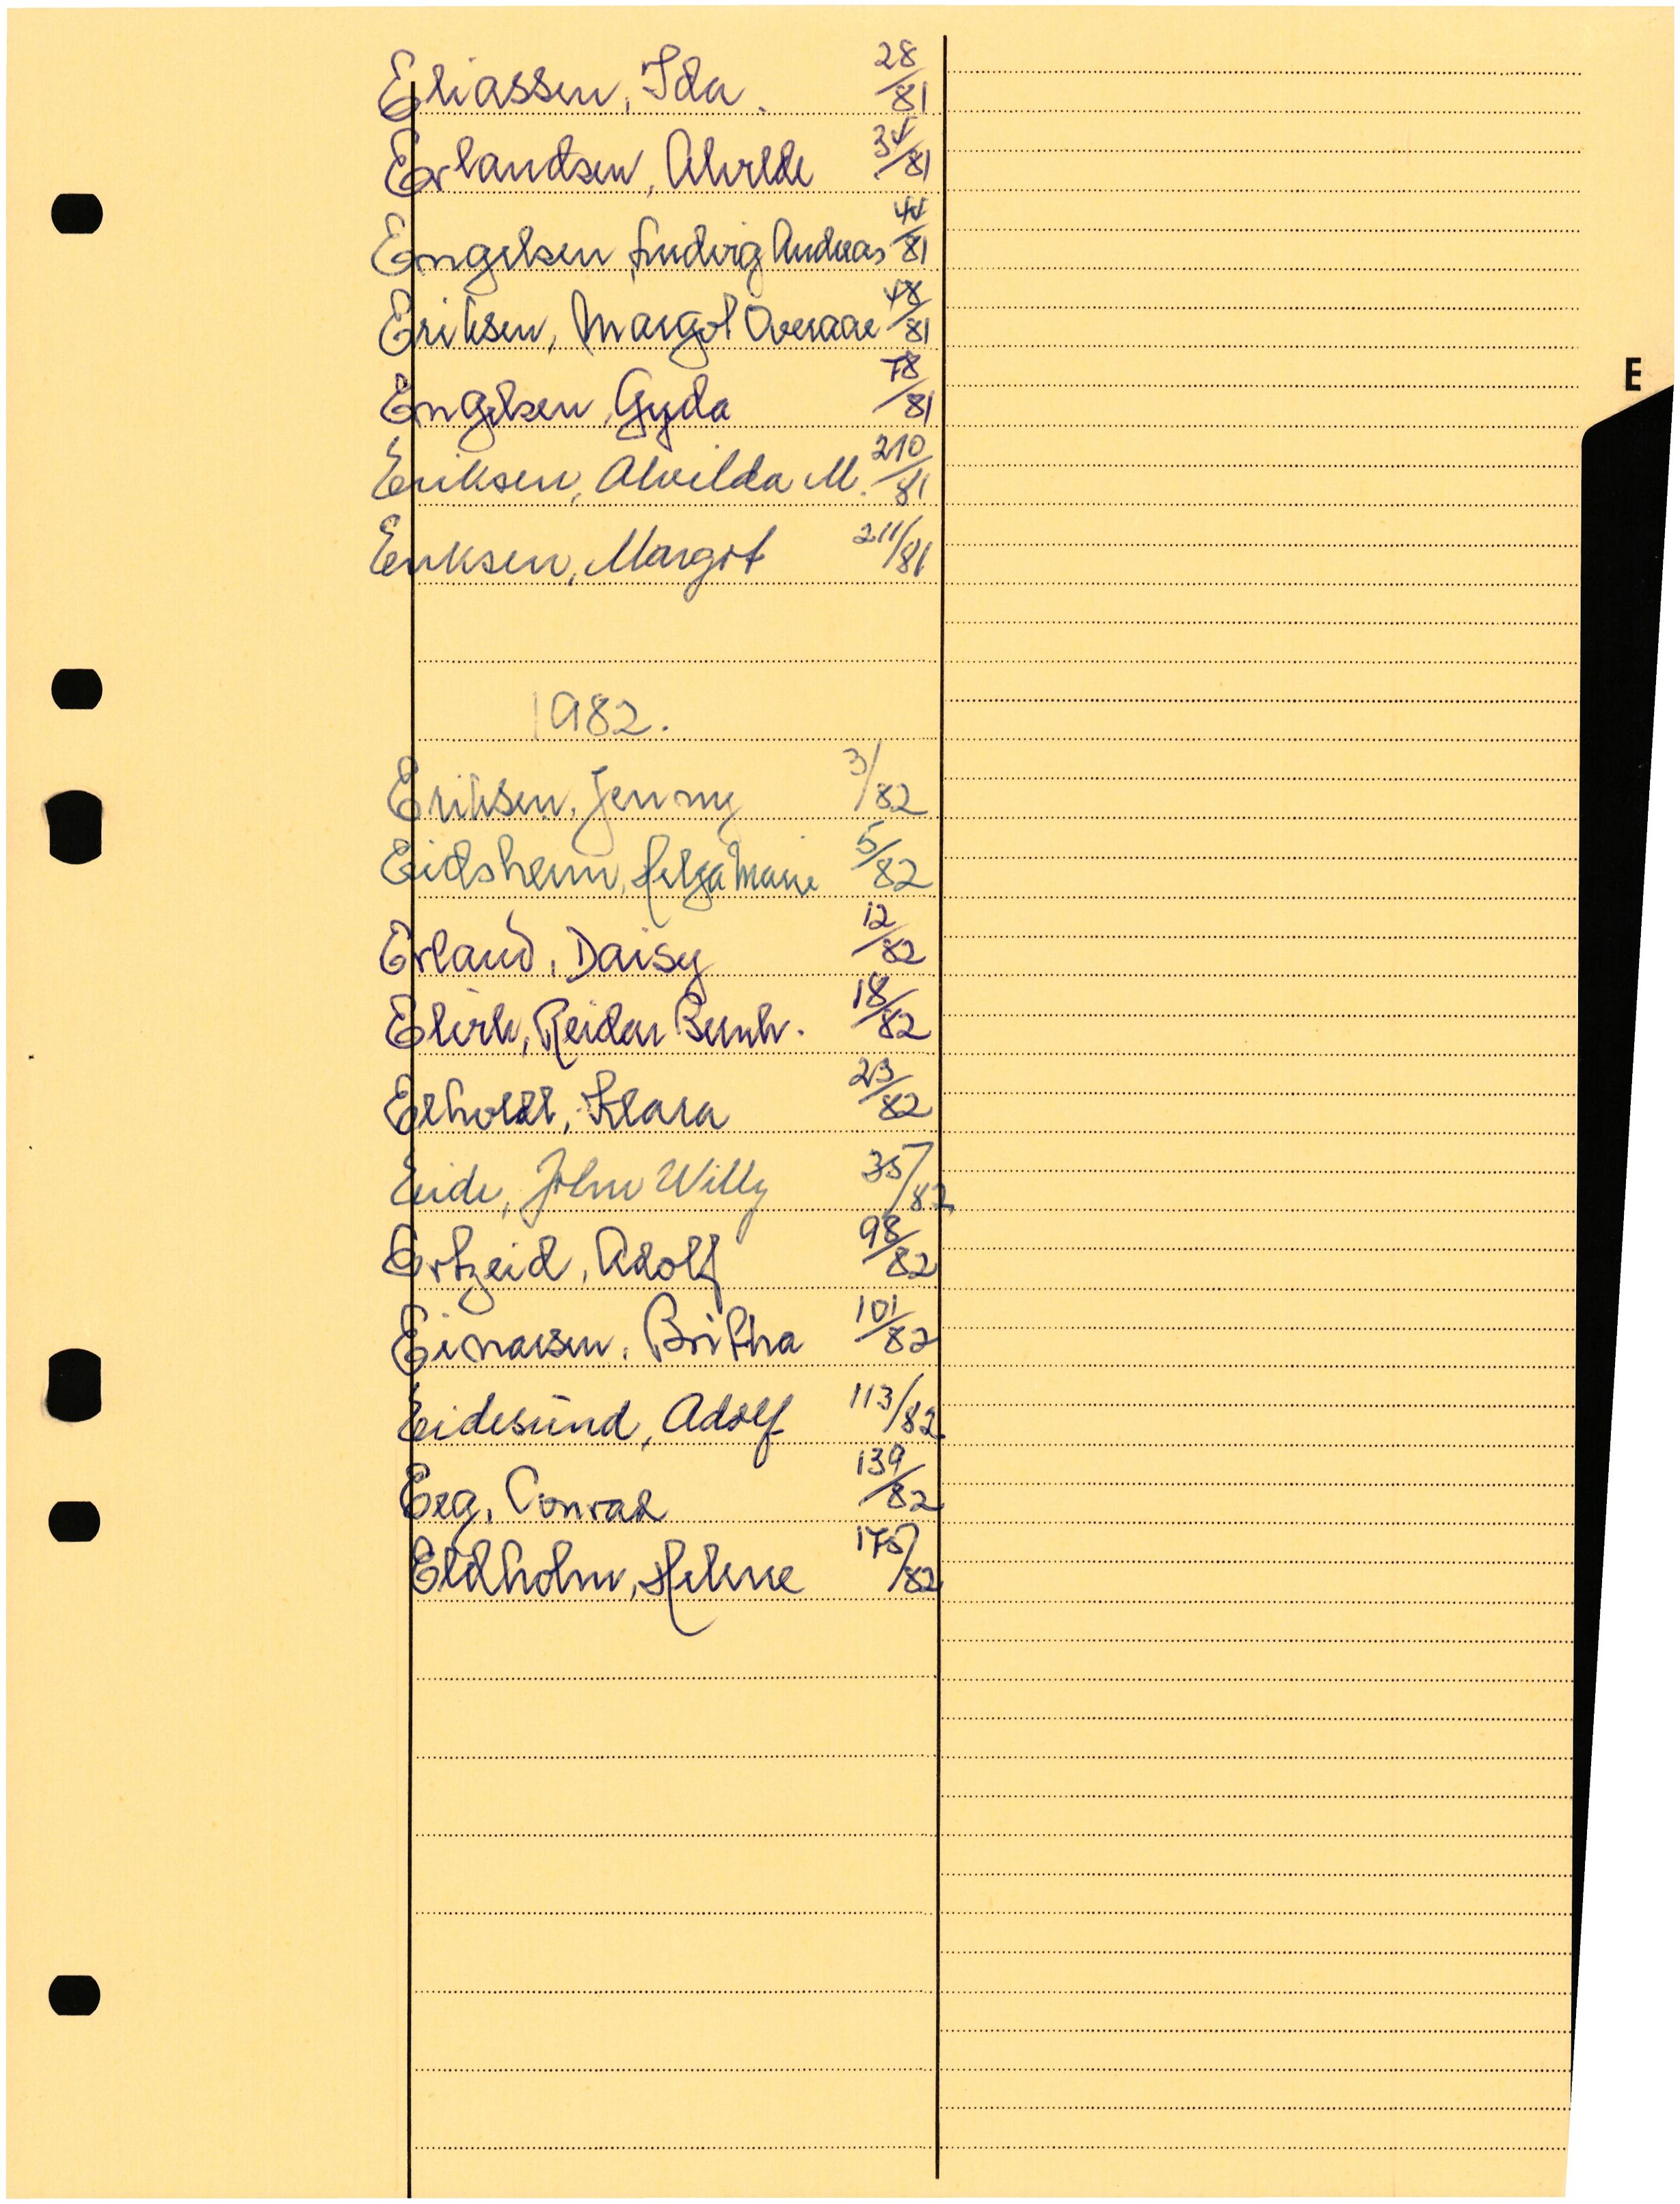 Eliassen, Ida. 28/81
Erlandsen, Alvilde 34/81
Engelsen, Ludvig Andreas 44/81
Eriksen, Margot Overaae 48/81
E
Engelsen, Gyda 78/81
Eriksen, Alvilda M. 210/81
Eriksen, Margot 211/81
1982.
Eriksen, Jenny 3/82
Eidsheim, Helga Marie 5/82
Erland, Daisy 12/82
Elvik, Reidar Bernh. 18/82
Klara 23/82
Eide, John Willy 35/82
Ertzeid, Adolf 98/82
Einarsen, Britha 101/82
Eidesund, Adolf 113/82
Eeg, Conrad 139/82
Eldholm, Helene 175/82